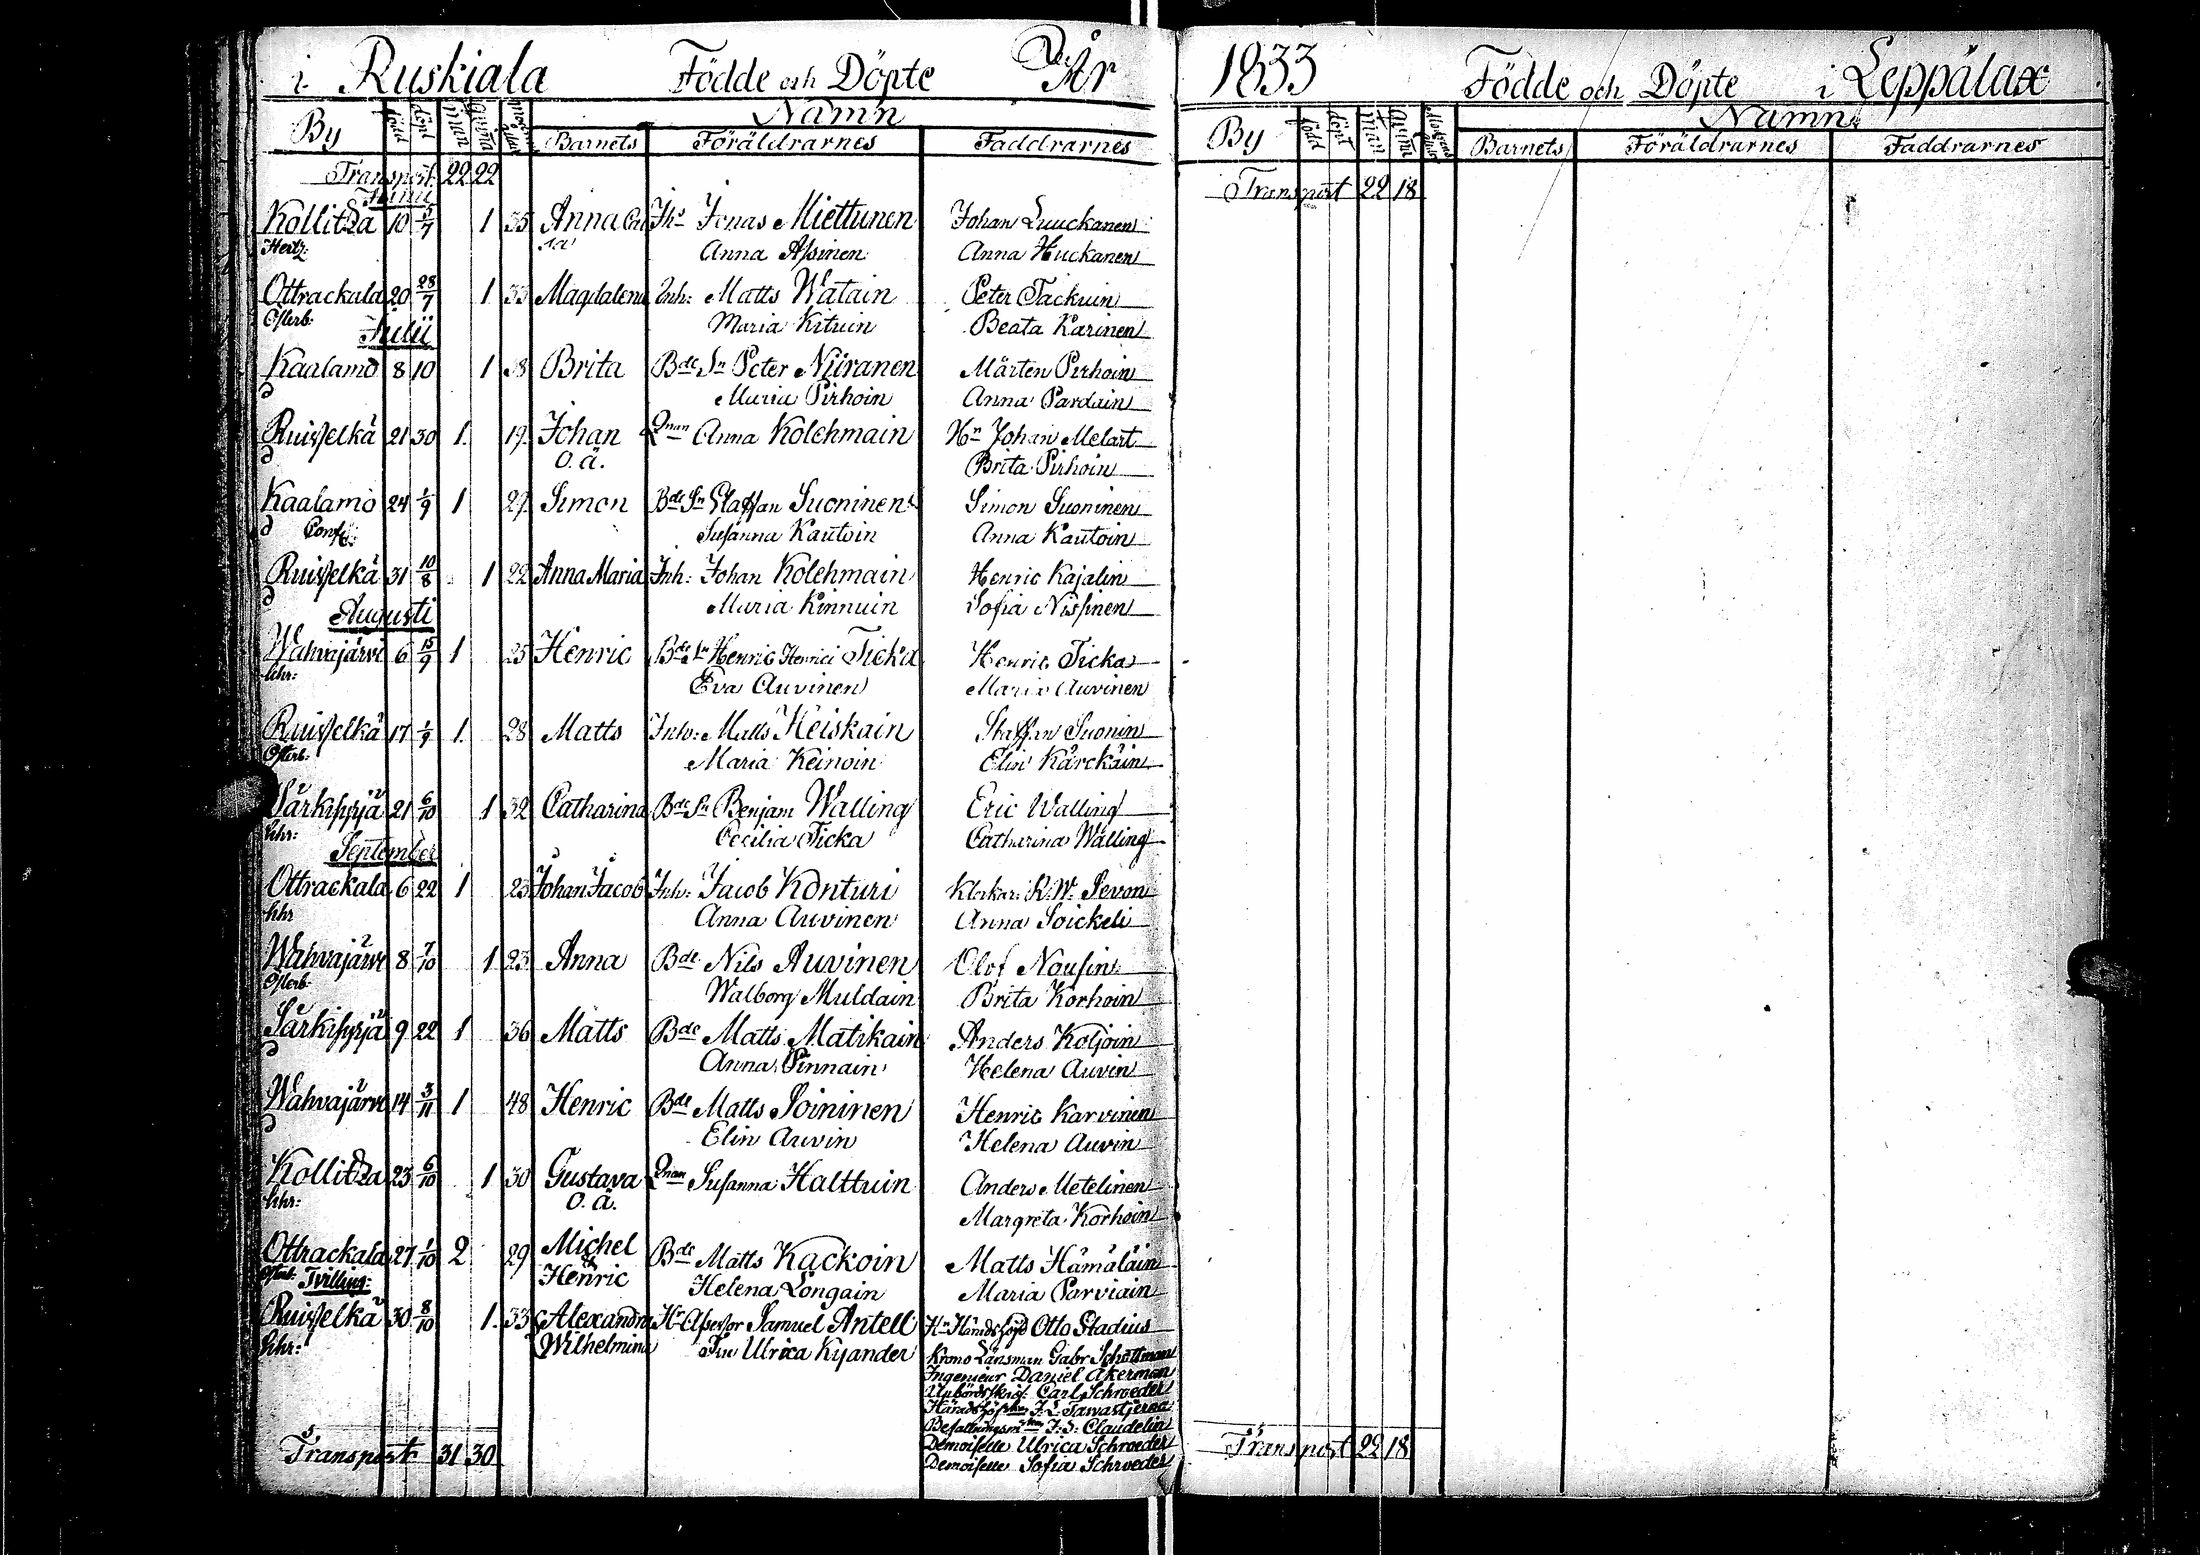 i. Ruskiala Födde och Döpte År
Namn
By född döpt Barnets Föräldrarnes Faddrarnes
Transport 22 22
Junii
Kollitza 10 5/7 1 35 Anna Jonas Miettunen Johan Luuckanen
Hertz: Anna Assinen Anna Huckanen
Ottrackala 20 28/7 1 33 Magdalena Inh: Matts Watain Peter Tackuin
Osterb: Maria Kituin Beata Karinen
Julii
Kaalamo 8 10 1 38 Brita Bde Sn Peter Niiranen Mårten Pirhoin
d Maria Pirhoin Anna Pardain
Ruisselkä 21 30 1. 19. Johan Qnan Anna Kolehmain Hn Johan Melart
d O. ä. Brita Pirhoin
Kaalamo 24 1/9 1 27. Simon Bde Sn Staffan Suoninen Simon Suoninen
d Susanna Kautoin Anna Kautoin
Ruisselkä 31 10/8 1 22 Anna Maria Inh: Johan Kolehmain Henric Kajalin
d Maria Kinnuin Sofia Nissinen
Augusti
Wahvajärvi 6 15/9 1 25 Henric Bde Sn Henric Henrici Ticka Henric Ticka
khr: Eva Auvinen Maria Auvinen
Ruisselkä 17 1/9 1. 28 Matts Inh: Matts Heiskain Staffan Suonin
Osterb: Maria Keinoin Elin Kärckäin
Särkisyrjä 21 6/10 1 32 Catharina Bde Sn Benjam Walling Eric Walling
khr: Cecilia Ticka Catharina Walling
September
Ottrackala 6 22 1 23 Johan Jacob Inh: Jacob Konturi Klockar: R. W. Sevon
khr Anna Auvinen Anna Soickeli
Wahvajärvi 8 7/10 1 23 Anna Bde Nils Auvinen Olof Nousin
Osterb: Walborg Muldain Brita Korhoin
Särkisyrjä 9 22 1 36 Matts Bde Matts Matikain Anders Koljoin
d Anna Pinnain Helena Auvin
Wahvajärvi 14 3/11 1 48 Henric Bde Matts Soininen Henric Karvinen
d Elin Auvin Helena Auvin
Kollitza 23 6/10 1 30 Gustava Qnan Susanna Halttuin Anders Metelinen
khr: O. ä. Margreta Korhoin
Ottrackala 27 1/10 2 29 Michel & Bde Matts Kackoin Matts Hämäläin
Tvilling: Henric Helena Longain Maria Parviain
Ruisselkä 30 8/10 1. 33 Alexandra Hr Assessor Samuel Antell Hr Häradshöfd Otto Stadius
khr: Wilhelmina Fru Ulrica Kyander Krono Länsman Gabr Schottman
Ingenieur Daniel Åkerman
Upbördsskrif. Carl Schroeder
Häradshöf J. L. Tawastjerna
Befallningsm J: S: Claudelin
Demoiselle Ulrica Schroeder
Transport 31 30 Demoiselle Sofia Schroeder
1833 Födde och Döpte i Leppälax
Namn
By född döpt Barnets Föräldrarnes Faddrarnes
Transport 22 18
Transport 22 18